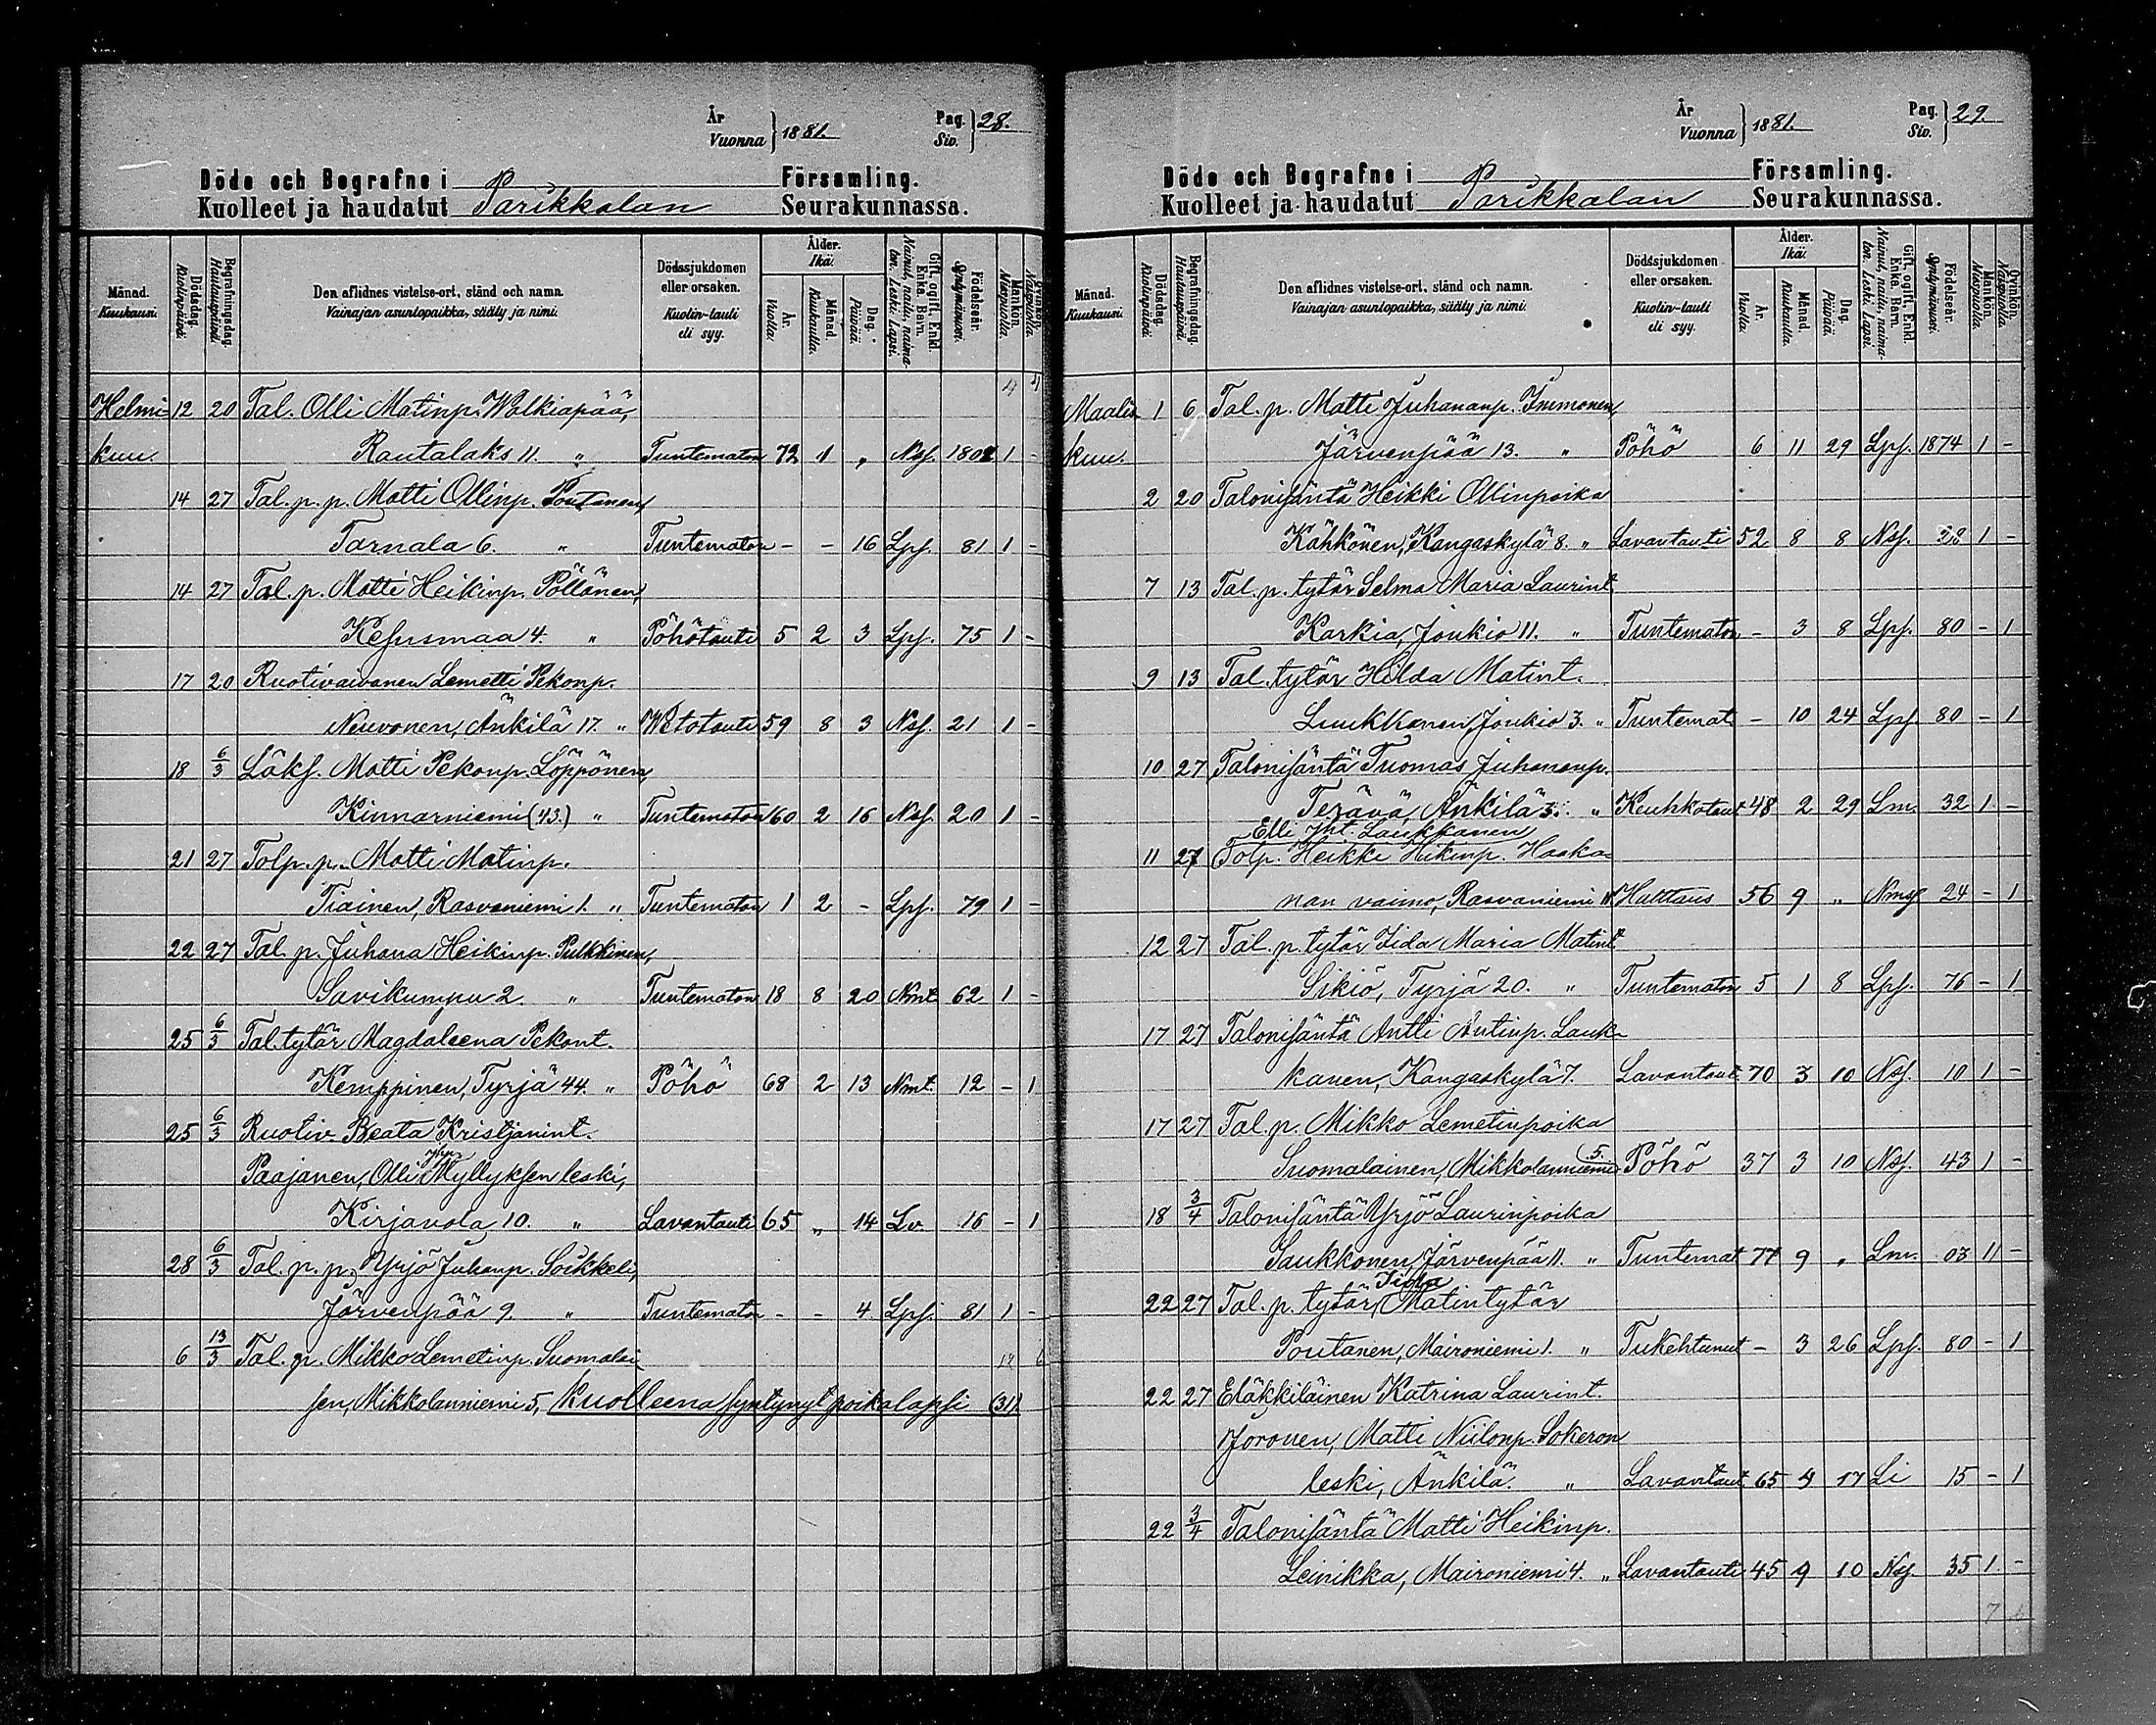 År
Vuonna } 1881.
Pag.
Siv. } 28.
Döde och Begrafne i Församling.
Kuolleet ja haudatut Parikkalan Seurakunnassa.
Månad. Kuukausi. Dödsdag. Kuolinpäivä. Begrafningsdag. Hautauspäivä. Den aflidnes vistelse-ort, stånd och namn. Vainajan asuntopaikka, sääty ja nimi. Dödssjukdomen eller orsaken. Kuolin-tauti eli syy. Ålder. Ikä. År. Vuotta. Månad. Kuukautta. Dag. Päivää. Gift, ogift, Enkl. Enka. Barn. Nainut, naitu, naimaton. Leski. Lapsi. Födelseår. Syntymävuosi. Mankön. Miespuolia. Qvinkön. Naispuolia.
Helmi- 12 20 Tal. Olli Matinp. Walkiapää,
kuu. Rautalaks 11. " Tuntematon 72 1 " Nsf. 1802 1 -
14 27 Tal. p. p. Matti Ollinp. Poutanen,
Tarnala 6. " Tuntematon - - 16 Lpf. 81 1 -
14 27 Tal. p. Matti Heikinp. Pöllänen,
Kesusmaa 4. " Pöhötauti 5 2 3 Lpf. 75 1 -
17 20 Ruotivaivanen Lemetti Pekonp.
Neuvonen, Änkilä 17. " Wetotauti 59 8 3 Nsf. 21 1 -
18 6/3 Läks. Matti Pekonp. Löppönen
Kinnarniemi (43.) " Tuntematon 60 2 16 Nsf. 20 1 -
21 27 Tolp. p. Matti Matinp.
Tiainen, Rasvaniemi 1. " Tuntematon 1 2 - Lpf. 79 1 -
22 27 Tal. p. Juhana Heikinp. Pulkkinen,
Savikumpu 2. " Tuntematon 18 8 20 Nmt. 62 1 -
25 6/3 Tal. tytär Magdaleena Pekont.
Kemppinen, Tyrjä 44. " Pöhö 68 2 13 Nmt. 12 - 1
25 6/3 Ruotiv. Beata Kristjanint.
Paajanen, Olli Myllyksen leski,
Kirjavola 10. " Lavantauti 65 " 14 Lv. 16 - 1
28 6/3 Tal. p. p. Yrjö Juhanp. Soikkeli,
Järvenpää 9. " Tuntematon - - 4. Lpf. 81 1 -
6 13/3 Tal. p. Mikko Lemetinp. Suomalai
sen, Mikkolanniemi 5, kuolleena syntynyt poikalapsi (31)
År
Vuonna } 1881.
Pag.
Siv. } 29.
Döde och Begrafne i Församling.
Kuolleet ja haudatut Parikkalan Seurakunnassa.
Månad. Kuukausi. Dödsdag. Kuolinpäivä. Begrafningsdag. Hautauspäivä. Den aflidnes vistelse-ort, stånd och namn. Vainajan asuntopaikka, sääty ja nimi. Dödssjukdomen eller orsaken. Kuolin-tauti eli syy. Ålder. Ikä. År. Vuotta. Månad. Kuukautta. Dag. Päivää. Gift, ogift, Enkl. Enka. Barn. Nainut, naitu, naimaton. Leski. Lapsi. Födelseår. Syntymävuosi. Mankön. Miespuolia. Qvinkön. Naispuolia.
Maalis 1 6 Tal. p. Matti Juhananp. Immonen,
kuu. Järvenpää 13. " Pöhö 6 11 29 Lpf. 1874 1 -
2 20 Talonisäntä Heikki Ollinpoika
Kähkönen, Kangaskylä 8. " Lavantauti 52 8 8 Nsf. 28 1 -
7 13 Tal. p. tytär Selma Maria Laurint.
Karkia, Joukio 11. " Tuntematon - 3 8 Lpf. 80 - 1
9 13 Tal. tytär Hilda Matint.
Luukkanen, Joukio 3. " Tuntemat. - 10 24 Lpf 80 - 1
10 27 Talonisäntä Tuomas Juhananp.
Terävä, Änkilä 3. " Keuhkotaut 48 2 29 Lm. 32 1 -
Elli Jht. Laukkanen
11 27 Tolp. Heikki Hikinp. Haaka
nan vaimo, Rasvaniemi Halttaus 56 9 " Nmsf 24 - 1
12 27 Tal. p. tytär Iida Maria Matint.
Sikiö, Tyrjä 20. " Tuntematon 5 1 8 Lpf. 76 - 1
17 27 Talonisäntä Antti Antinp. Lauk-
kanen, Kangaskylä 7. Lavantaut. 70 3 10 Nsf. 10 1 -
17 27 Tal. p. Mikko Lemetinpoika
Suomalainen, Mikkolanniemi 5. Pöhö 37 3 10 Nsf. 43 1 -
18 3/4 Talonisäntä Yrjö Laurinpoika
Saukkonen, Järvenpää 11. " Tuntemat 77 9 " Lm. 03 1 -
22 27 Tal. p. tytär Iida Matintytär
Poutanen, Maironiemi 1. " Tukehtunut - 3 26 Lpf. 80 - 1
22 27 Eläkkiläinen Katrina Laurint.
Joronen, Matti Niilonp. Sokeron
leski, Änkilä. " Lavantaut. 65 4 17 Li 15 - 1
22 3/4 Talonisäntä Matti Heikinp.
Leinikka, Maironiemi 4. " Lavantauti 45 9 10 Nsf. 35 1. -
7 6